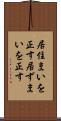 居住まいを
正す居ずま
いを正す